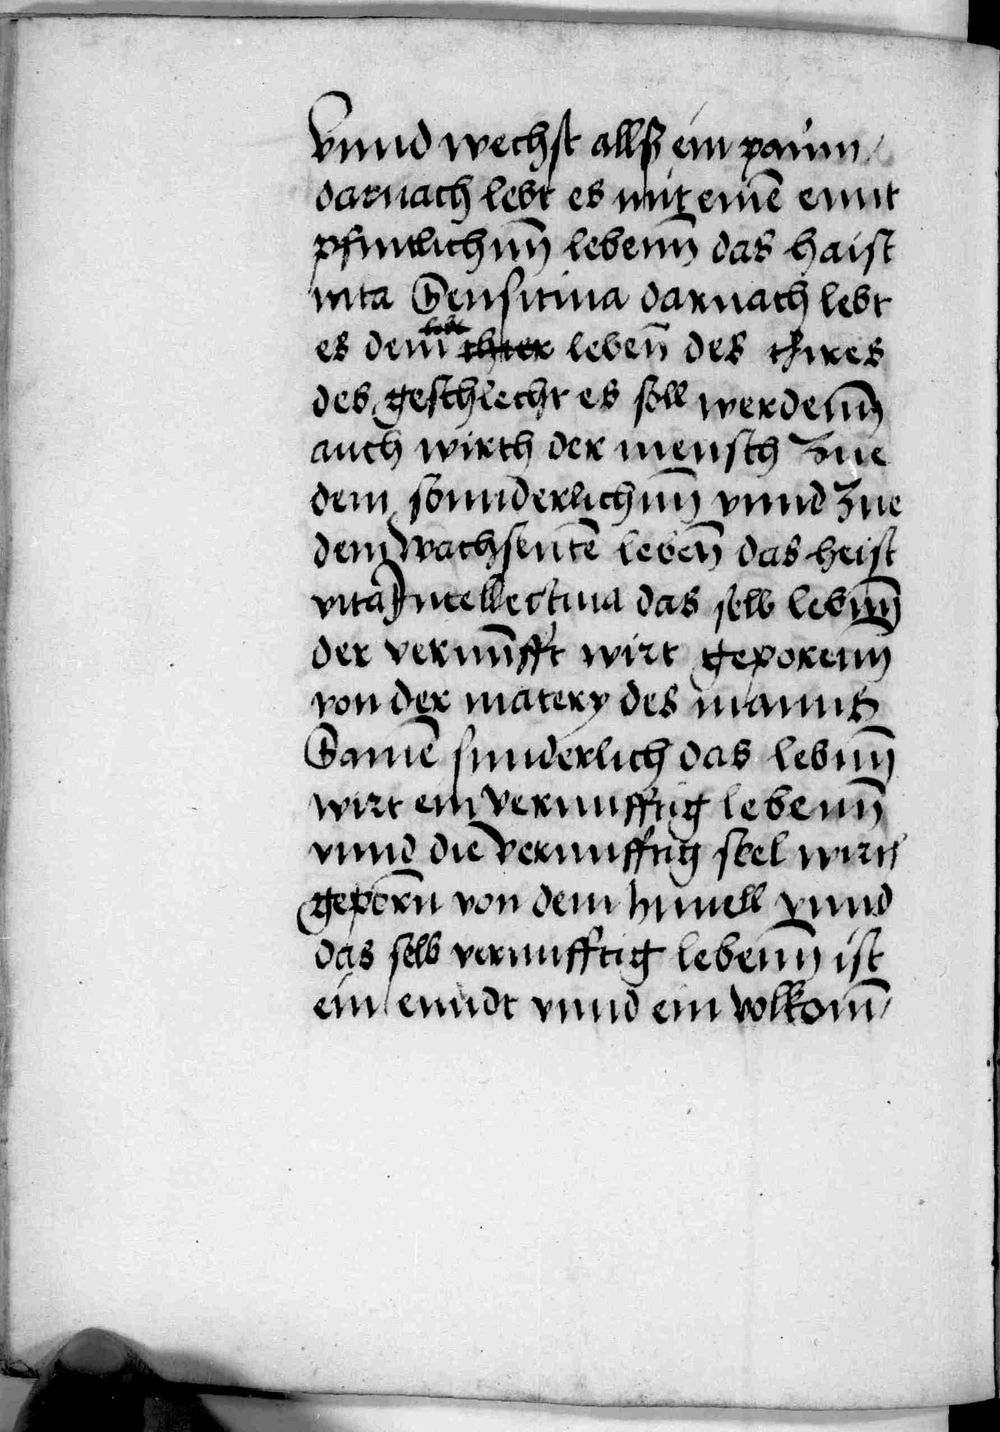 Vnnd wechst allß ein paum /
darnach lebt es mit einē emt
pfintlichnn̄ lebenn̄ das haist
vita Sensitiua darnach lebt
es dem lebt thier lebēn des thires
des geschlecht es soll werdenn̄
auch wirth der mensch zue
dem sonnderlichnn̄ vnnd zue
dem wachsentē lebēn das heist
vita Intellectiua das selb lebnn̄
der vernūfft wirt geporenn
von der matery des manns
Samē sunderlich das lebnn̄
wirt ein vernunfftig lebenn̄
vnnd die vernunfftig seel wirt
geporn̄ von dem himell vnnd
das selb vernunfftig lebenn̄ ist
ein enndt vnnd ein volkom̄ /